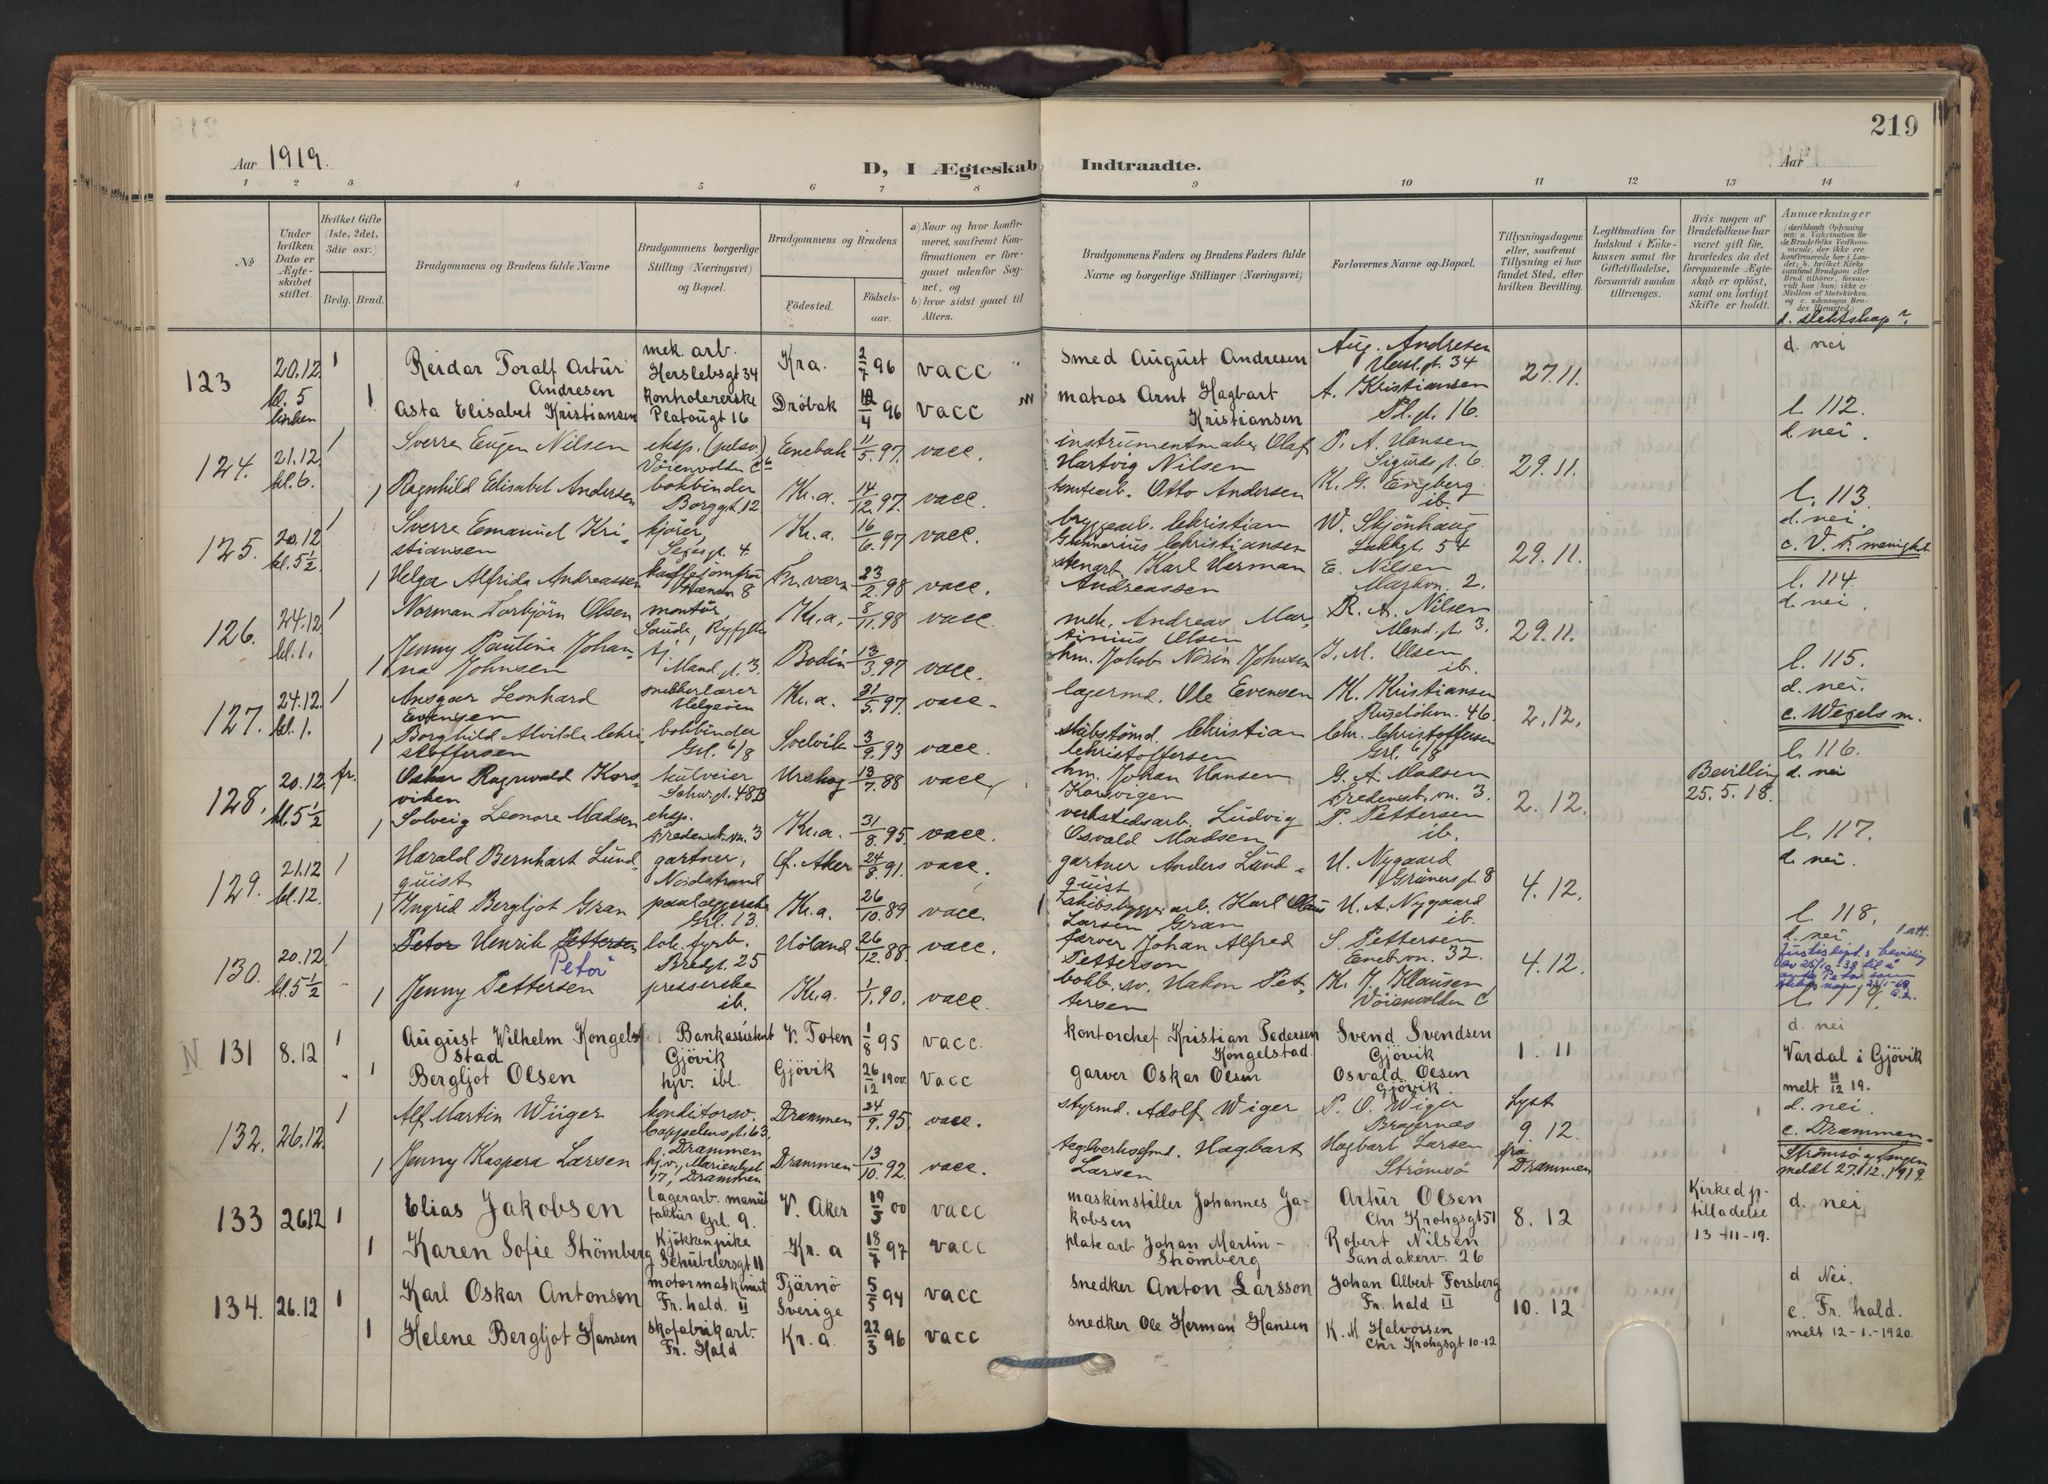 219
Aar 1919.
D, I Ægteskab Indtraadte.
Aar
1 2 3 4 5 6 7 8 9 10 11 12 13 14
№
Under hvilken Dato er Ægteskabet stiftet.
Hvilket Gifte (1ste, 2det, 3die osv.)
Brdg. Brud.
Brudgommens og Brudens fulde Navne
Brudgommens borgerlige Stilling (Næringsvei) og Bopæl.
Brudgommens og Brudens
Fødested.
Fødselsaar.
a) Naar og hvor konfirmeret, saafremt Konfirmationen er foregaaet udenfor Sognet, og
b) hvor sidst gaaet til Alters.
Brudgommens Faders og Brudens Faders fulde Navne og borgerlige Stillinger (Næringsvei)
Forlovernes Navne og Bopæl.
Tillysningsdagene eller, saafremt Tillysning ei har fundet Sted, efter hvilken Bevilling.
Legitimation for Indskud i Enkekassen samt for Giftetilladelse, forsaavidt saadan tiltrænges.
Hvis nogen af Brudefolkene har været gift før, hvorledes da det foregaaende Ægteskab er opløst, samt om lovligt Skifte er holdt.
Anmærkninger
d. slektskap?
123 20.12 kl. 5 kirken 1 Reidar Toralf Artur Andresen mek. arb. Herslebsgt 34 Kra. 2/7 96 vacc smed August Andresen Aug. Andresen 34 27.11. d. nei
1 Asta Elisabet Kristiansen kontrolererske Platougt 16 Drøbak 10/4 96 vacc matros Arnt Hagbart Kristiansen A. Kristiansen Pl. gt. 16. l. 112.
124. 21.12 kl. 6. 1 Sverre Eugen Nilsen eksp. (pelsv) Vøienvolden Enebak 11/5 97. vacc. instrumentmaker Olaf Hartvig Nilsen P. A. Hansen Sigurds gt. 6. 29.11. d. nei.
1 Ragnhild Elisabet Andersen bokbinder Borggt. 12 Kr.a. 14/12 97. vacc. tomtearb. Otto Andersen K. G. Engberg ib. l. 113.
125. 20.12 kl. 5 1/2 1 Sverre Emanuel Kristiansen kjører, Seges gt. 4. Kr.a. 16/6 97 vacc. bryggearb. Christian Gunnerius Christiansen W. Skjønhaug Lakkgt. 54 29.11. d. nei. c. V. F. menighet.
1 Helga Alfrida Andreassen 8 Tr.værn 23/2 98 vacc. stenarb. Karl Herman Andreassen E. Nilsen Markvn. 2. l. 114.
126. 24.12. kl. 1. 1 Norman Torbjørn Olsen montør Saude, Ryfylke Kr.a, 8/11 98 vacc. mek. Andreas Martinius Olsen R. A. Nilsen Mand. gt. 3. 29.11. d. nei.
1 Jenny Paulina Johanna Johnsen tj. Mand. gt. 3 Bodin 13/3 97 vacc. hm. Jakob Norin Johnsen J. M. Olsen ib. l. 115.
127. 24.12. kl. 1. 1 Ansgar Leonhard Evensen snekkerlærer Helgøen Kr.a. 21/5 97. vacc. lagermd. Ole Evensen K. Kristiansen Ruseløkvn. 46. 2.12. d. nei. c. Wexels m.
1 Borghild Alvilde Christoffersen bokbinder Grl. 6/8 Svelvik 3/9 93 vacc. Christian Christoffersen Chr. Christoffersen Grl. 6/8 l. 116.
128. 20.12. kl. 5 1/2 fr. Oskar Ragnvald Korsviken kulveier 48B Urskog 13/7 88 vacc. hm. Johan Hansen Korsvigen G. A. Madsen Fredensb. vn. 3. 2.12. Bevilling 25.5.18. d. nei
1 Solveig Leonore Madsen eksp. Fredensb. vn. 3 Kr.a. 31/8 95. vacc. verkstedsarb. Ludvig Osvald Madsen P. Pettersen ib. l. 117.
129. 21.12 kl. 12. 1 Harald Bernhart Lundquist gartner, Nordstrand Ø. Aker 24/8 91. vacc. gartner Anders Lundquist U. Nygaard Grüners gt. 8 4.12. d. nei.
1 Ingrid Bergljot Gran Grl. 13. Kr.a. 26/10 89 vacc. skibsbyggerarb. Karl Olaus Larsen Gran U. A. Nygaard ib. l. 118.
130. 20.12. kl. 5 1/2 1 Petor Henrik Pettersen lok. fyrb. Bredgt. 25 Høland 26/12 88. vacc. farver Johan Alfred Petterson S. Pettersen Enebvn. 32. 4.12. d. nei
Petor
1 Jenny Pettersen presserske ib. Kr.a. 1/1 90. vacc. bokb. sv. Hakon Pettersen K. J. Klausen Vøienvolden l. 119.
131 8.12 1 August Wilhelm Kongelstad Bankassistent Gjövik V. Toten 1/8 95 vacc. kontorchef Kristian Pedersen Kongelstad. Svend Svendsen Gjövik 1. 11 d. nei Vardal i Gjövik
1 Bergljot Olsen hjv. ibl. Gjövik 26/12 1900. vacc garver Oskar Olsen Osvald Olsen Gjövik melt 11/12 19.
132. 26.12. 1 Alf Martin Wiiger konditorsv. Cappelens gt. 63, Drammen Drammen 24/9 95. vacc. styrmd. Adolf Wiger P. O. Wiger Bragernes Lyst 9.12. fra Drammen d. nei. c. Drammen.
1 Jenny Kaspara Larsen hj.v., Marienlyst 17, Drammen Drammen 13/10 92. vacc. teglverksfmd. Hagbart Larsen Hagbart Larsen Strømsø Strømsø og Tangen meldt 27.12.1919.
133 26.12 1 Elias Jakobsen lagerarb. manufaktur Grl. 9. V. Aker 19/3 00 vacc maskinstiller Johannes Jakobsen Artur Olsen Chr Krohgsgt 51 8. 12 Kirkedp. tilladelse 13-11-19. d. nei
1 Karen Sofie Strömberg Kjökkenpike Schübelersgt 11 Kr. a 18/7 97 vacc platearb Johan Martin Strömberg Robert Nilsen Sandakerv. 26
134. 26.12 1 Karl Oskar Antonsen motormaskinist Fr. hald. II Tjärnö Sverige 5/5 94 vacc snedker Anton Larsson Johan Albert Forsberg Fr. hald II 10. 12 d Nei. c. Fr. hald.
1 Helene Bergljot Hansen skofabrikarb. Fr. Hald Kr. a. 22/3 96 vacc snedker Ole Herman Hansen K. M Halvorsen Chr Krohgsgt 10-12 melt 12-1.-1920.